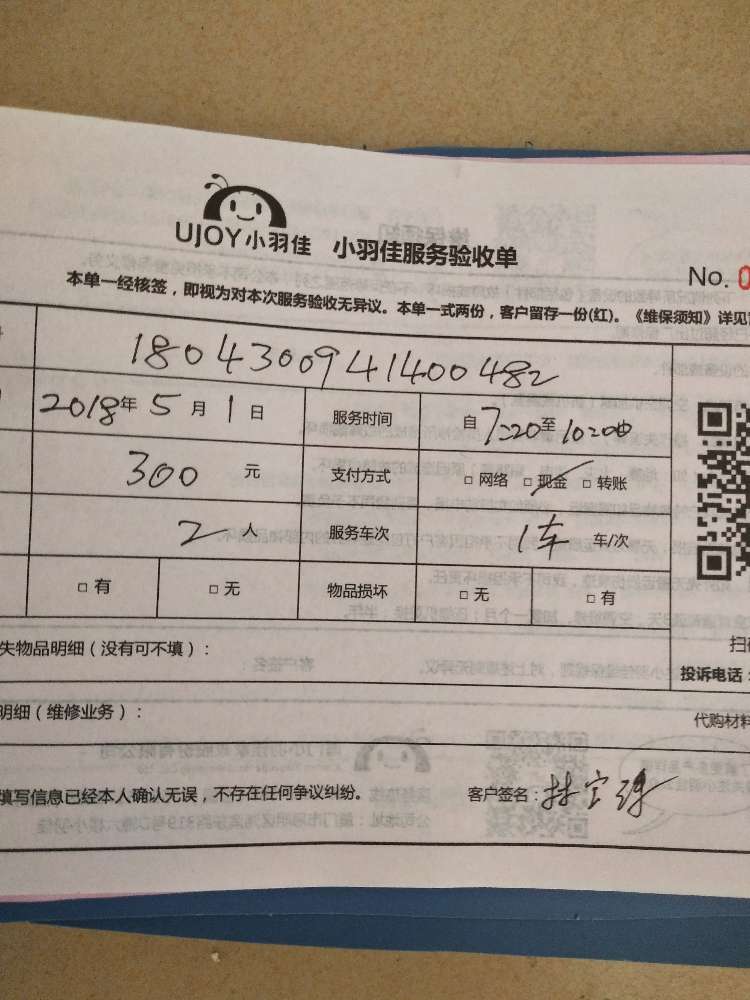 UJOY小羽佳 小羽佳服务验收单
No. 0
本单一经核签，即视为对本次服务验收无异议。本单一式两份，客户留存一份(红)。《维保须知》详见
180430094141400482
2018年5月1日 服务时间 自7:20至10:00
300元 支付方式 □ 网络 □ 现金 □ 转账
2人 服务车次 1车 车/次
□ 有 □ 无 物品损坏 □ 无 □ 有
失物品明细（没有可不填）：
扫
投诉电话：
明细（维修业务）：
代购材料
填写信息已经本人确认无误，不存在任何争议纠纷。 客户签名：林宝